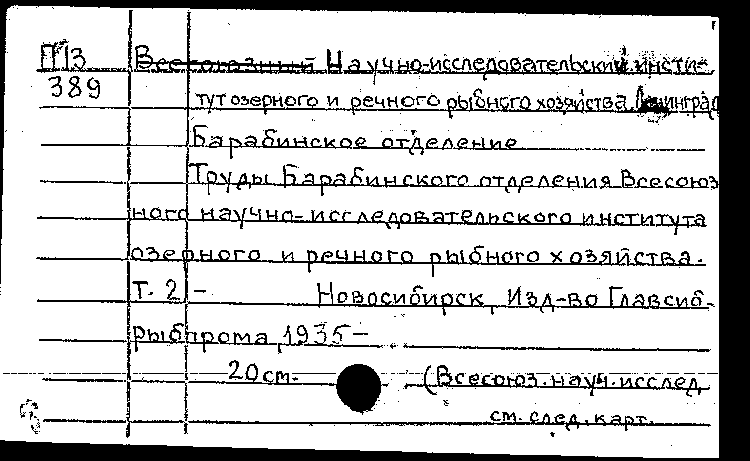 П13 ~~Всесоюзный~~ Научно-исследовательский инсти-
389 тут озерного и речного рыбного хозяйства. Ленинград
Барабинское отделение
Труды Барабинского отделения Всесоюз
ного научно-исследовательского института
озерного и речного рыбного хозяйства.
Т. 2 - Новосибирск, Изд-во Главсиб-
рыбпрома, 1935 -
20 см. (Всесоюз. науч. исслед
см. след. карт.